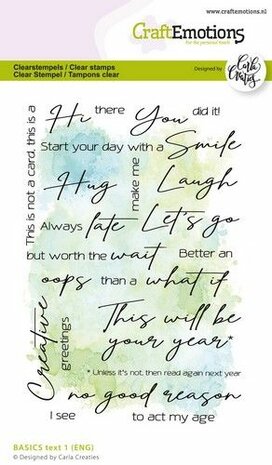 www.craftemotions.nl
CraftEmotions
for the personal touch!
Clearstempels / Clear stamps
Clear Stempel / Tampons clear
Designed by
Carla Creaties
This is not a card, this is a
Hi there You did it!
Start your day with a Smile
Hug make me Laugh
Always late Let's go
but worth the wait Better an
oops than a what if
Creative greetings
This will be
your year*
* Unless it's not, then read again next year
no good reason
I see to act my age
BASICS text 1 (ENG)
© Designed by Carla Creaties